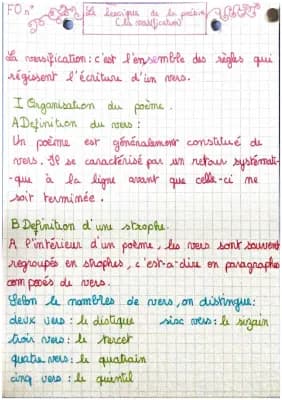 FO n°
Le lexique de la poésie
(la versification)
La versification : c'est l'ensemble des règles qui
régissent l'écriture d'un vers.
I Organisation du poème.
A Définition du vers :
Un poème est généralement constitué de
vers. Il se caractérisé par un retour systémati-
-que à la ligne avant que celle-ci ne
soit terminée.
B Définition d'une strophe.
A l'intérieur d'un poème, les vers sont souvent
regroupés en strophes, c'est-a-dire en paragraphe
composés de vers.
Selon le nombres de vers, on distingue:
deux vers : le distique six vers : le sizain
trois vers : le tercet
quatre vers : le quatrain
cinq vers : le quintil